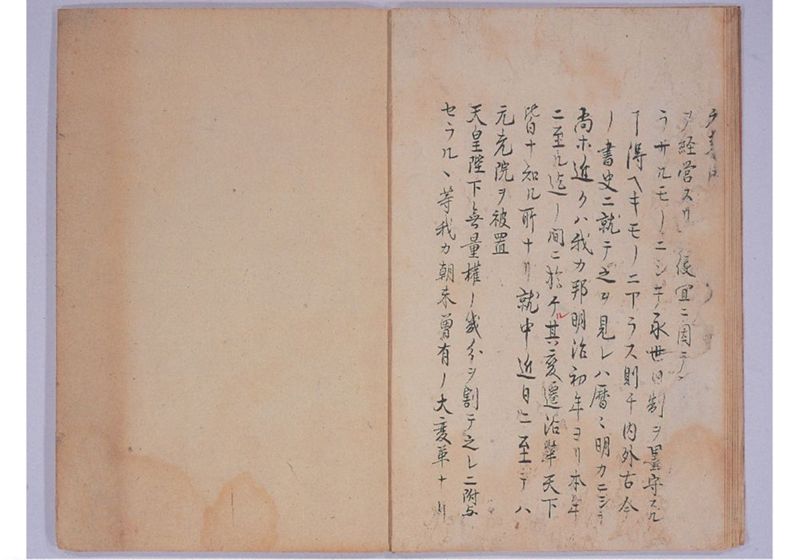 ヲ経営スル 宜ニ因テ
ラサルモノニシテ永世旧制ヲ墨守スル
ヿ得ヘキモノニアラス則チ内外古今
ノ書史ニ就テ之ヲ見レハ暦々明カニシテ
尚ホ近クハ我カ邦明治初年ヨリ本年
ニ至ル迄ノ間ニ於ケル其変遷沿革天下
皆ナ知ル所ナリ就中近日ニ至テハ
元老院ヲ被置
天皇陛下ノ無量権ノ幾分ヲ割テ之レニ附与
セラルヽ等我カ朝未曽有ノ大変革ナリ